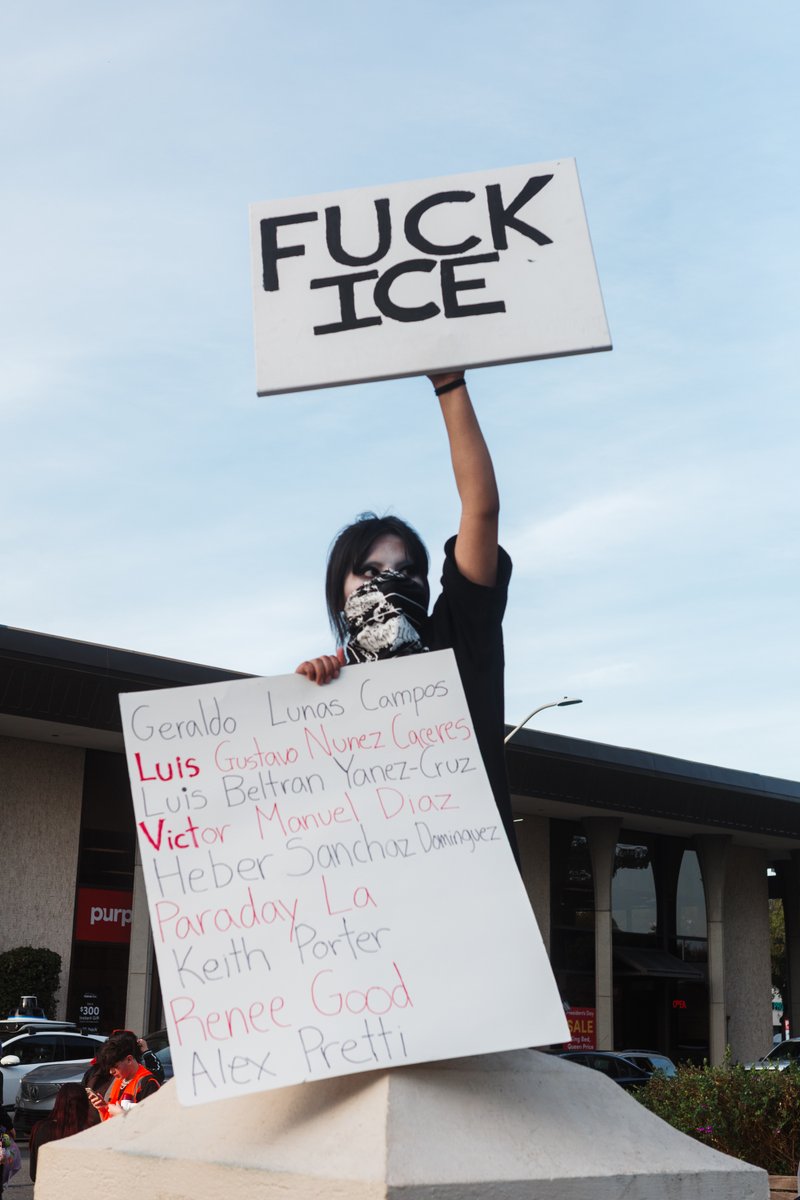 FUCK
ICE
Geraldo Lunas Campos
Luis Gustavo Nunez Caceres
Luis Beltran Yanez-Cruz
Victor Manuel Diaz
Heber Sanchaz Dominguez
Paraday La
Keith Porter
Renee Good
Alex Pretti
purp
$300
OPEN
SALE